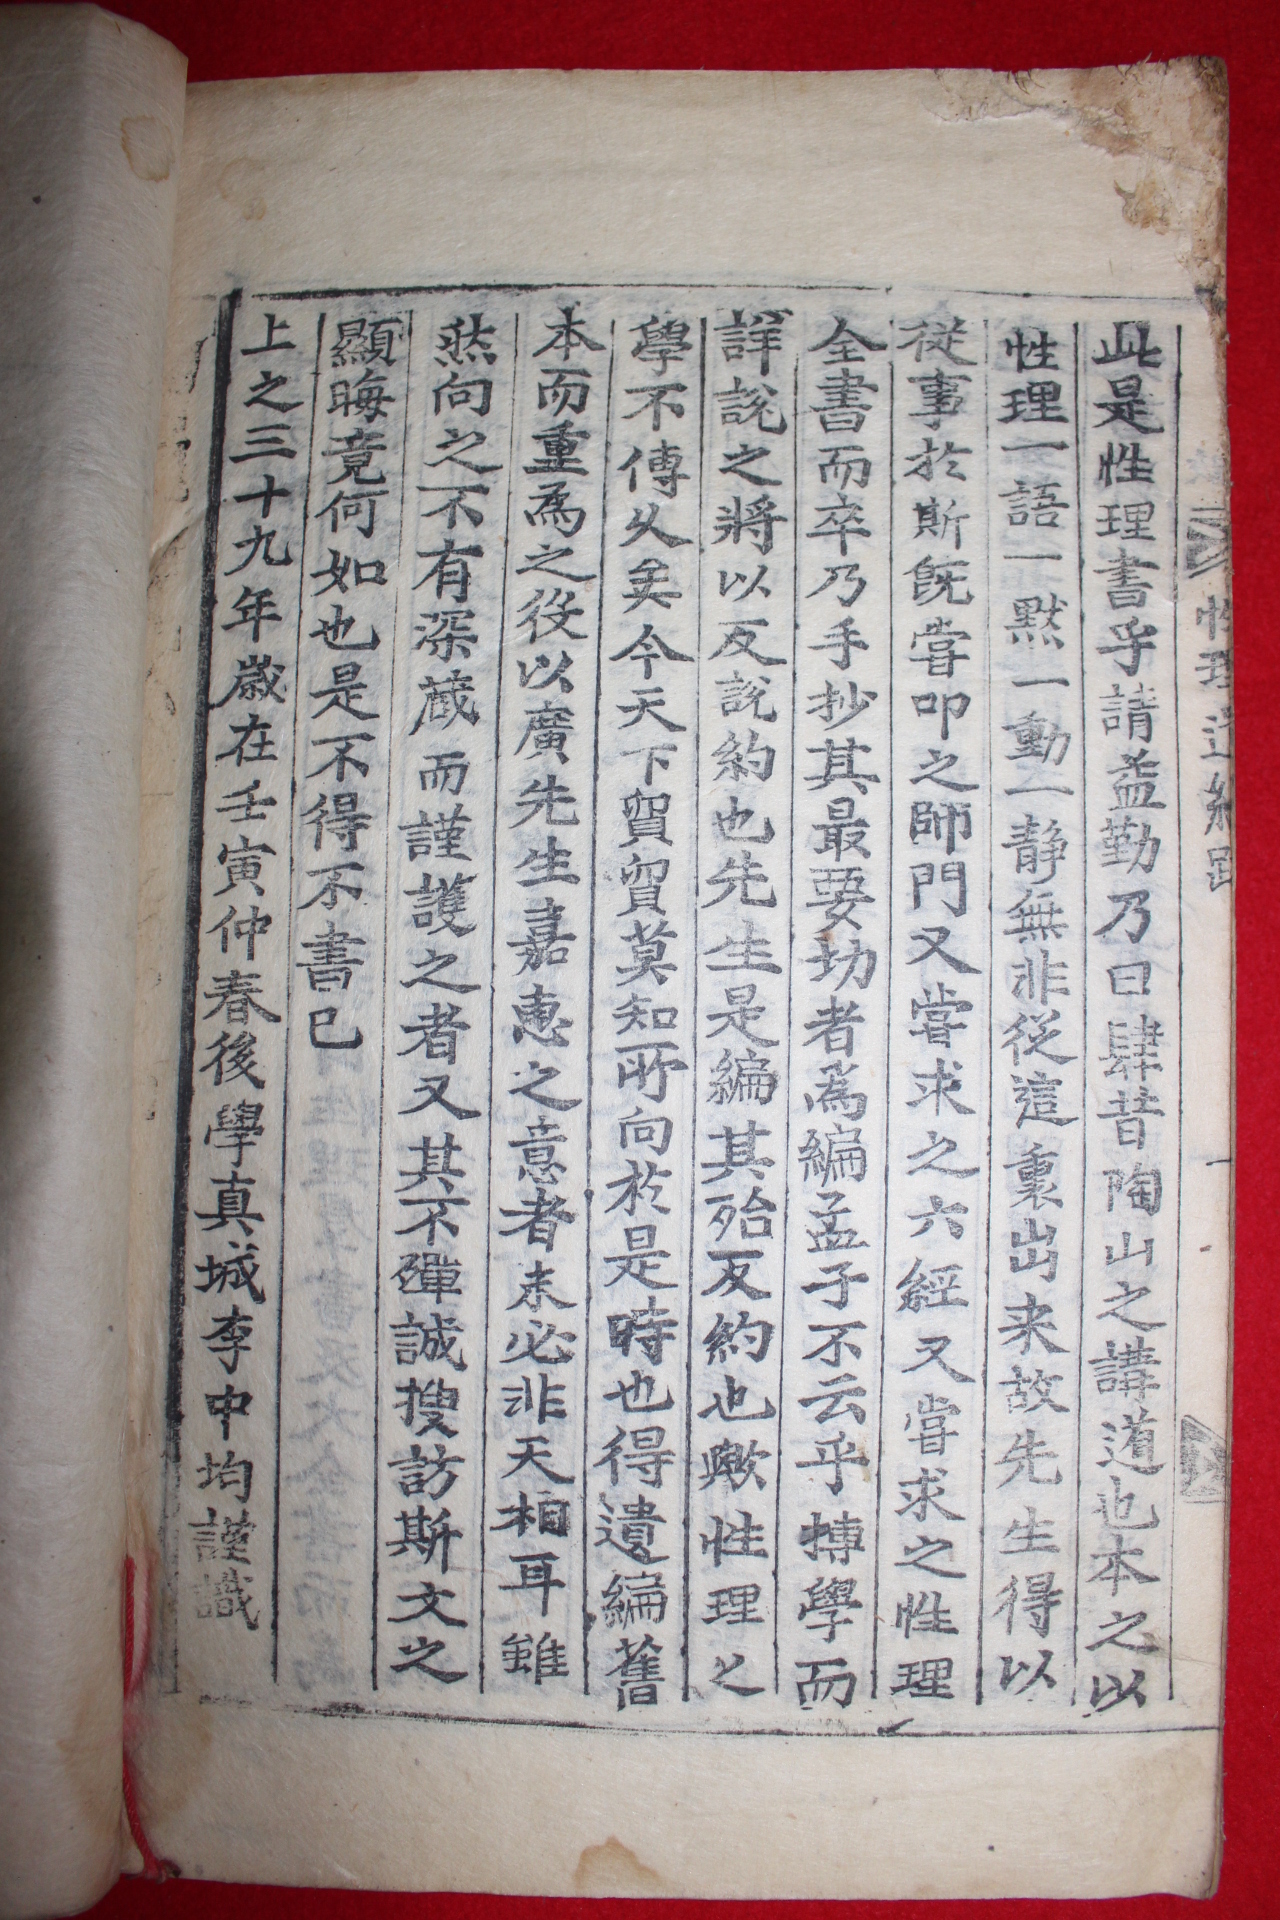 此是性理書乎請益勤乃曰肆昔陶山之講道也本之以
性理一語一默一動一靜無非從這裏出来故先生得以
従事於斯旣嘗叩之師門又嘗求之六經又嘗求之性理
全書而卒乃手抄其最要功者爲編孟子不云乎博學而
詳說之將以反說約也先生是編其殆反約也歟性理之
學不傳久矣今天下貿貿莫知所向於是時也得遺編舊
本而重爲之役以廣先生嘉惠之意者未必非天相耳雖
然向之不有深藏而謹護之者又其不殫誠搜訪斯文之
顯晦竟何如也是不得不書已
上之三十九年歲在壬寅仲春後學真城李中均謹識